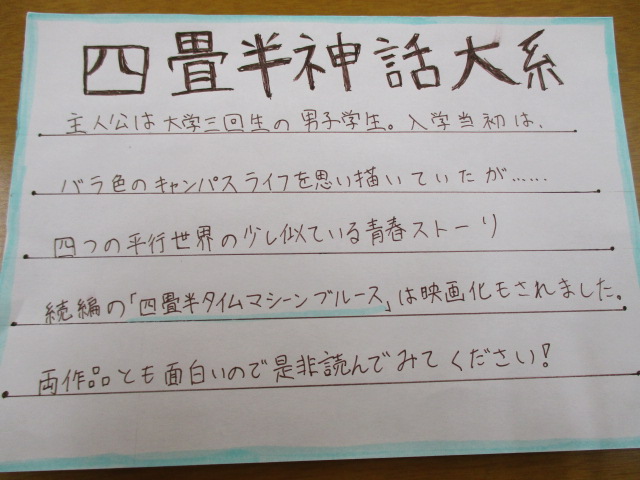 四畳半神話大系
主人公は大学三回生の男子学生。入学当初は、
バラ色のキャンパスライフを思い描いていたが……
四つの平行世界の少し似ている青春ストーリ
続編の「四畳半タイムマシーンブルース」は映画化もされました。
両作品とも面白いので是非読んでみてください!